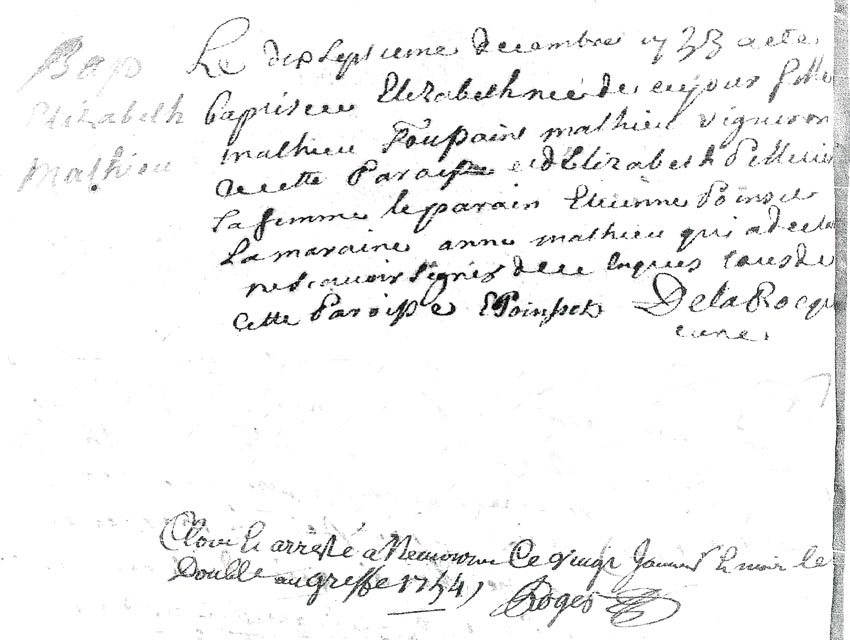 Bap
Elizabeth
Mathieu
Le dix septieme decembre 1733 a ete
baptisee Elizabeth neé de ce jour fille
mathieu Toupaine mathieu vigneron
de cette Paroisse et d'Elizabeth Pelletier
sa femme le parain Etienne Poinset
La maraine anne mathieu qui a declaré
ne scavoir signer de ce enquis tous de
cette Paroisse EPoinset DelaRocq
curé.
Clos et arresté a ce vingt Janvier le
Double au greffe 1734
Roger